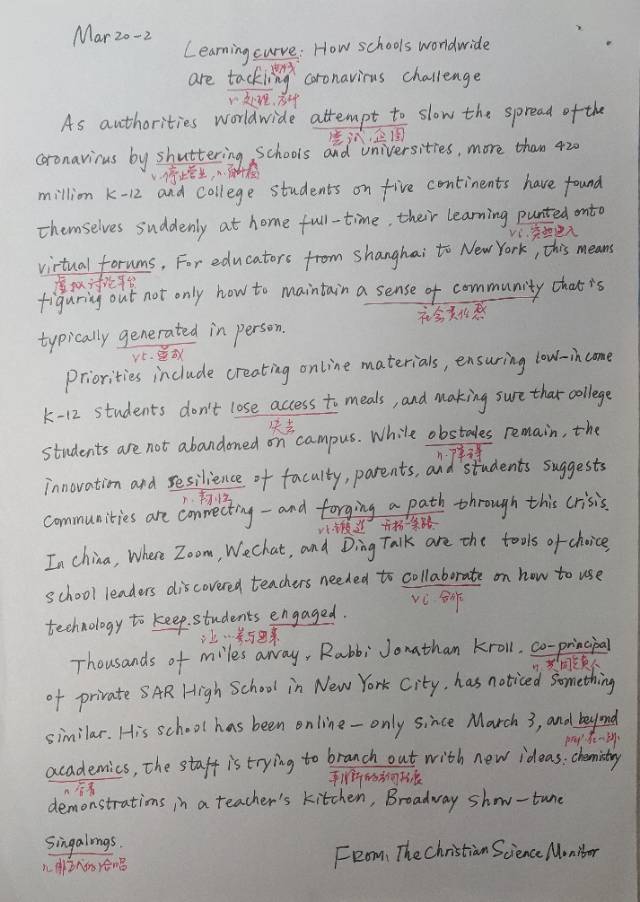 Mar 20-2
Learning curve: How schools worldwide
曲线
are tackling coronavirus challenge
v.处理,应付
As authorities worldwide attempt to slow the spread of the
尝试,企图
coronavirus by shuttering schools and universities, more than 420
v.停止营业,n.
million K-12 and college students on five continents have found
themselves suddenly at home full-time, their learning punted onto
vi.
virtual forums. For educators from Shanghai to New York, this means
虚拟讨论平台
figuring out not only how to maintain a sense of community that is
社会责任感
typically generated in person.
vt.
Priorities include creating online materials, ensuring low-income
K-12 students don't lose access to meals, and making sure that college
失去
students are not abandoned on campus. While obstales remain, the
n.障碍
innovation and resilience of faculty, parents, and students suggests
n.韧性
communities are connecting - and forging a path through this crisis.
开拓一条路
In China, where Zoom, WeChat, and Ding Talk are the tools of choice,
school leaders discovered teachers needed to collaborate on how to use
vi.合作
technology to keep students engaged.
让…参与进来
Thousands of miles away, Rabbi Jonathan Kroll, co-principal
n.共同负责人
of private SAR High School in New York City, has noticed something
similar. His school has been online-only since March 3, and beyond
academics, the staff is trying to branch out with new ideas: chemistry
demonstrations in a teacher's kitchen, Broadway show-tune
singalongs.
From: The Christian Science Monitor